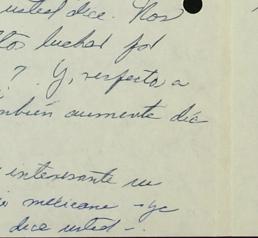 usted dice. Nos
luchar por
? Y, respecto a
también aumente día
interesante su
mexicana - ya
dice usted -.